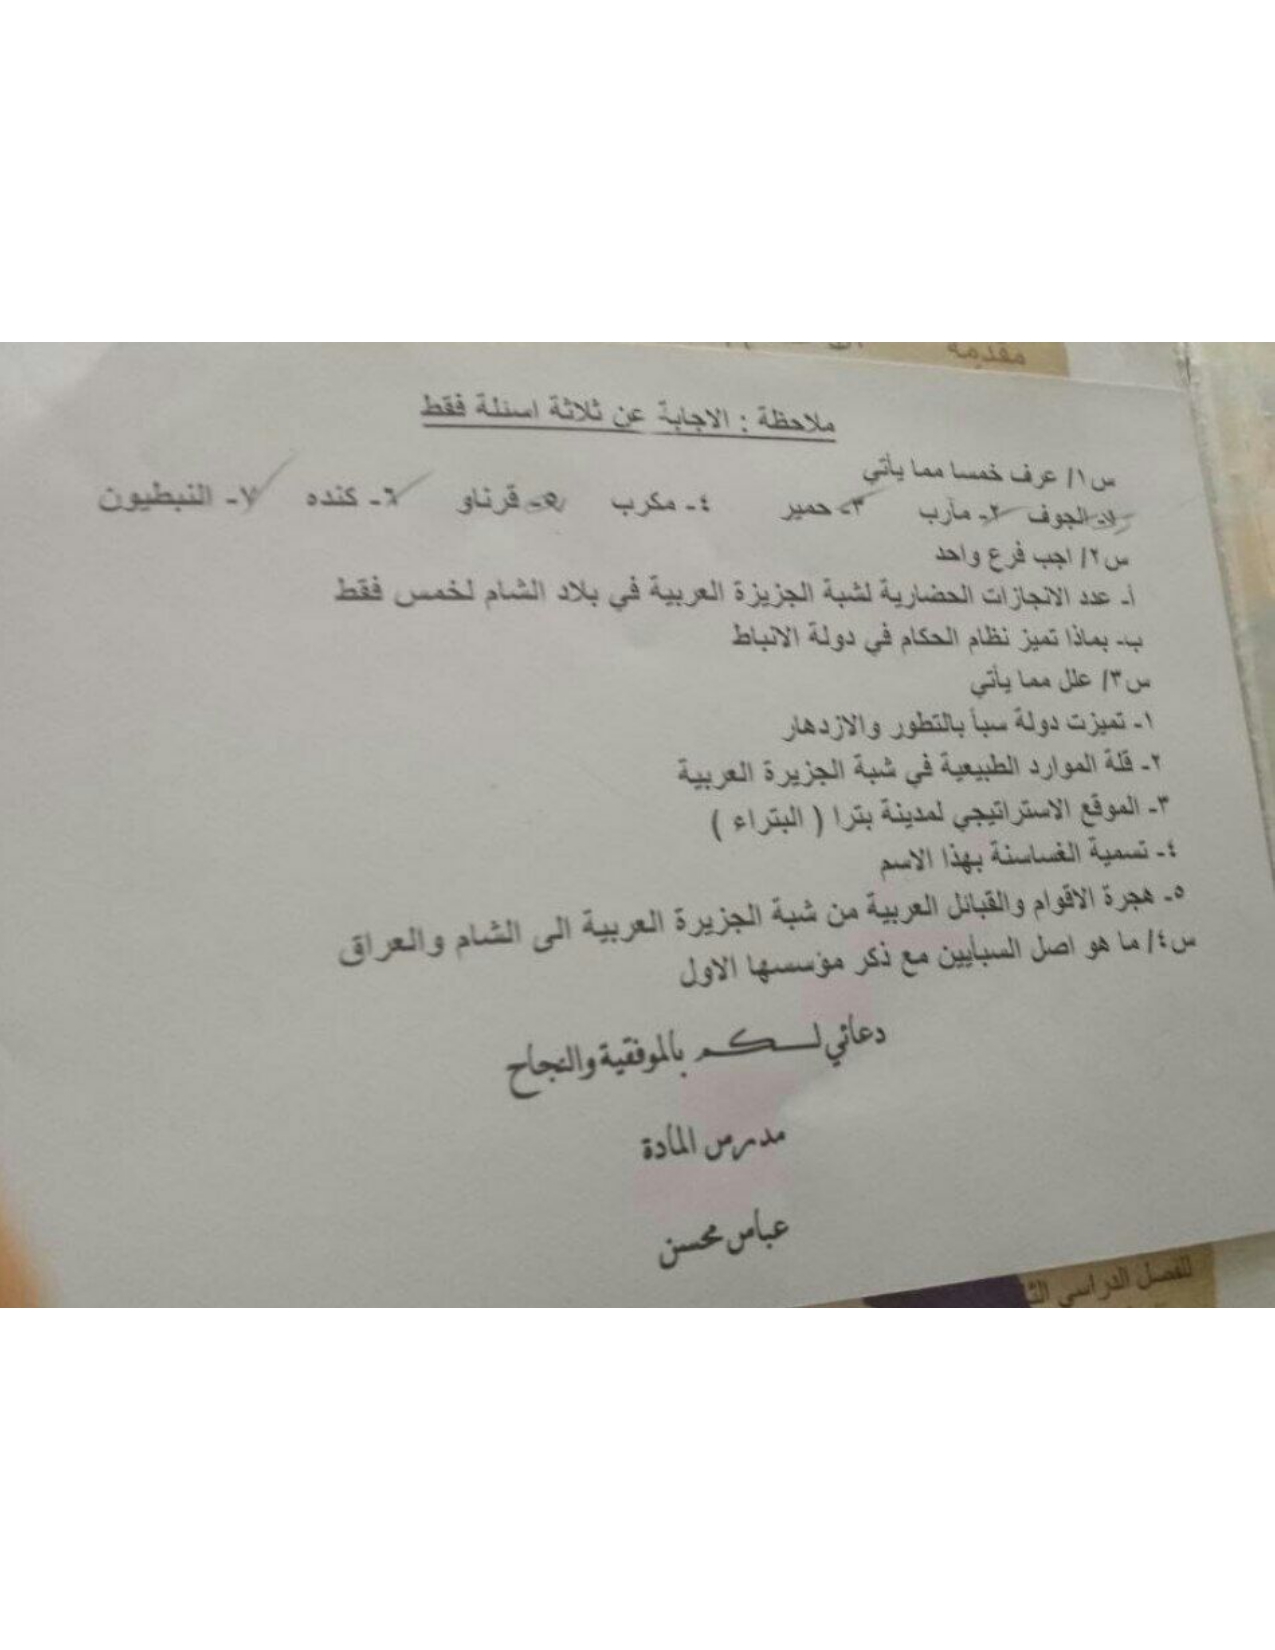 مقدمة
ملاحظة : الاجابة عن ثلاثة اسئلة فقط
س١/ عرف خمسا مما يأتي
١- الجوف ٢- مآرب ٣- حمير ٤- مكرب ٥- قرناو ٦- كنده ٧- النبطيون
س٢/ اجب فرع واحد
أ- عدد الانجازات الحضارية لشبة الجزيزة العربية في بلاد الشام لخمس فقط
ب- بماذا تميز نظام الحكام في دولة الانباط
س٣/ علل مما يأتي
١- تميزت دولة سبأ بالتطور والازدهار
٢- قلة الموارد الطبيعية في شبة الجزيرة العربية
٣- الموقع الاستراتيجي لمدينة بترا ( البتراء )
٤- تسمية الغساسنة بهذا الاسم
٥- هجرة الاقوام والقبائل العربية من شبة الجزيرة العربية الى الشام والعراق
س٤/ ما هو اصل السبأيين مع ذكر مؤسسها الاول
دعائي لكم بالموفقية والنجاح
مدرس المادة
عباس محسن
للفصل الدراسي